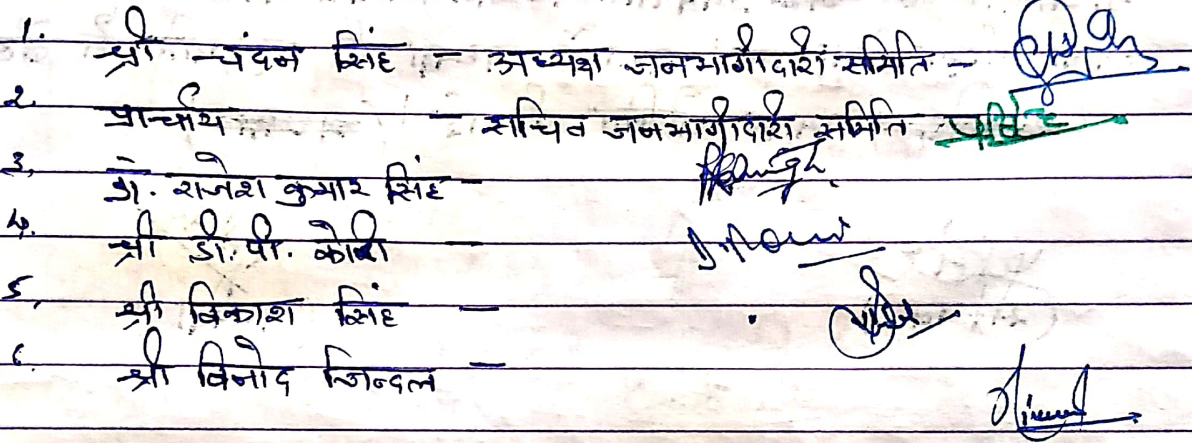 1. श्री चंदन सिंह - अध्यक्ष जनभागीदारी समिति -
2. प्राचार्य - सचिव जनभागीदारी समिति
3. डॉ. राजेश कुमार सिंह -
4. श्री डी. पी. कोरी -
5. श्री विकाश सिंह -
6. श्री विनोद जिन्दल -